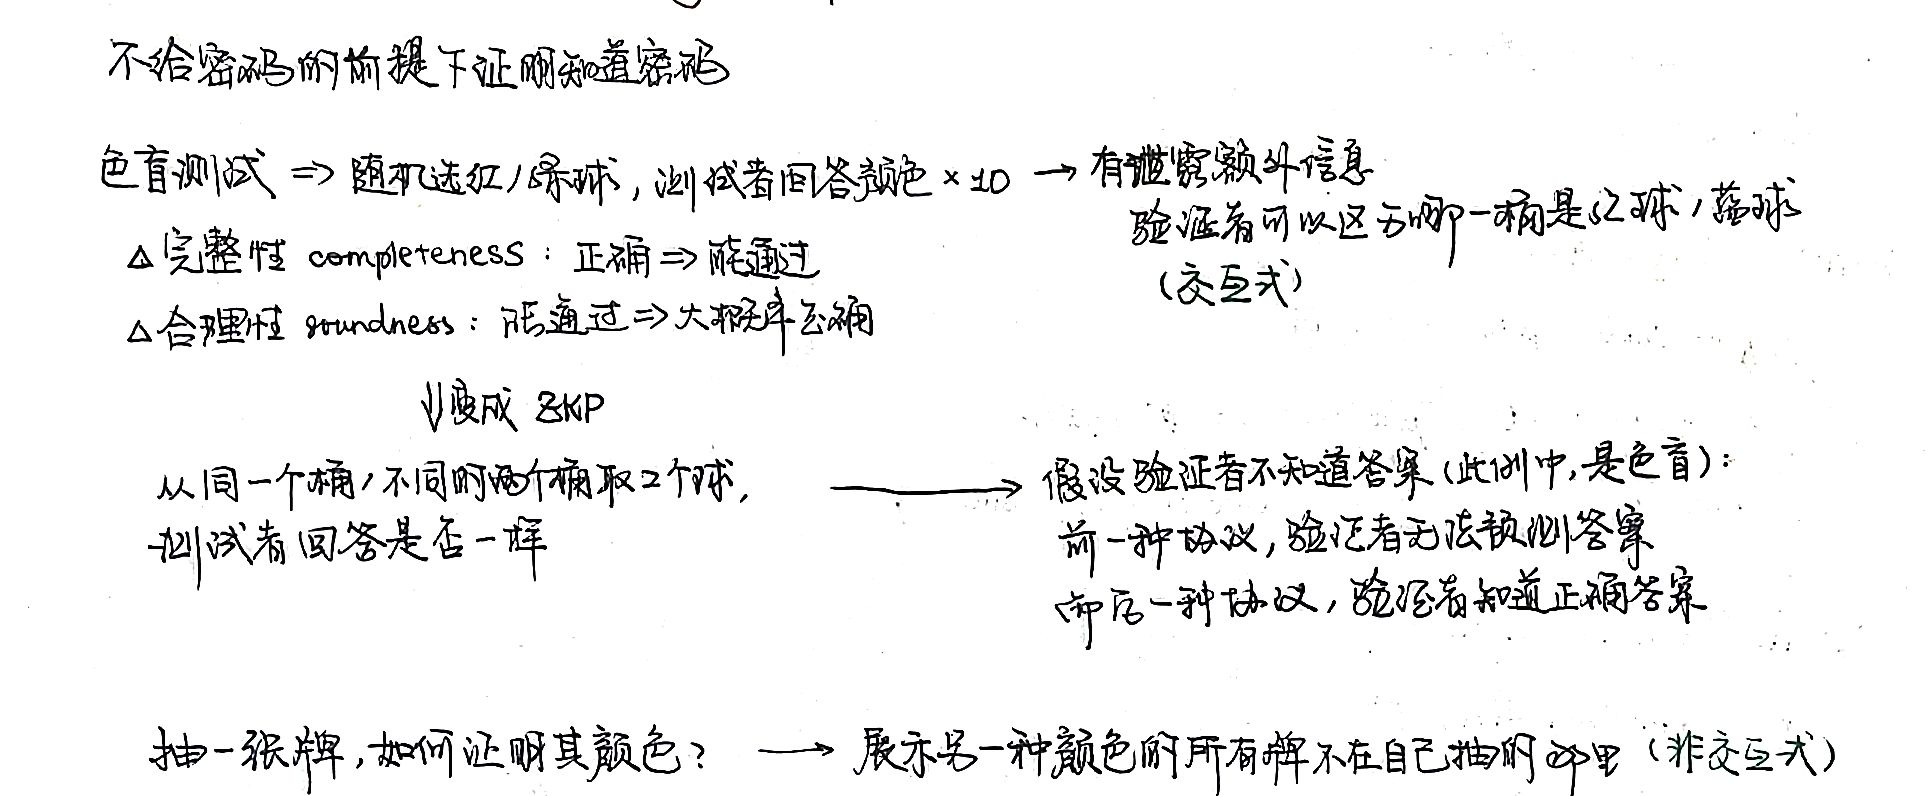 不给密码的前提下证明知道密码
色盲测试 ⇒ 随机选红/绿球，测试者回答颜色 × 10 → 有泄露额外信息
验证者可以区分哪一桶是红球/蓝球
(交互式)
△ 完整性 completeness : 正确 ⇒ 能通过
△ 合理性 soundness : 能通过 ⇒ 大概率正确
⇓ 变成 ZKP
从同一个桶/不同的两个桶取2个球，
测试者回答是否一样
→ 假设验证者不知道答案 (此例中,是色盲) :
前一种协议，验证者无法预测答案
而后一种协议，验证者知道正确答案
抽一张牌，如何证明其颜色？ → 展示另一种颜色的所有牌不在自己抽的里 (非交互式)